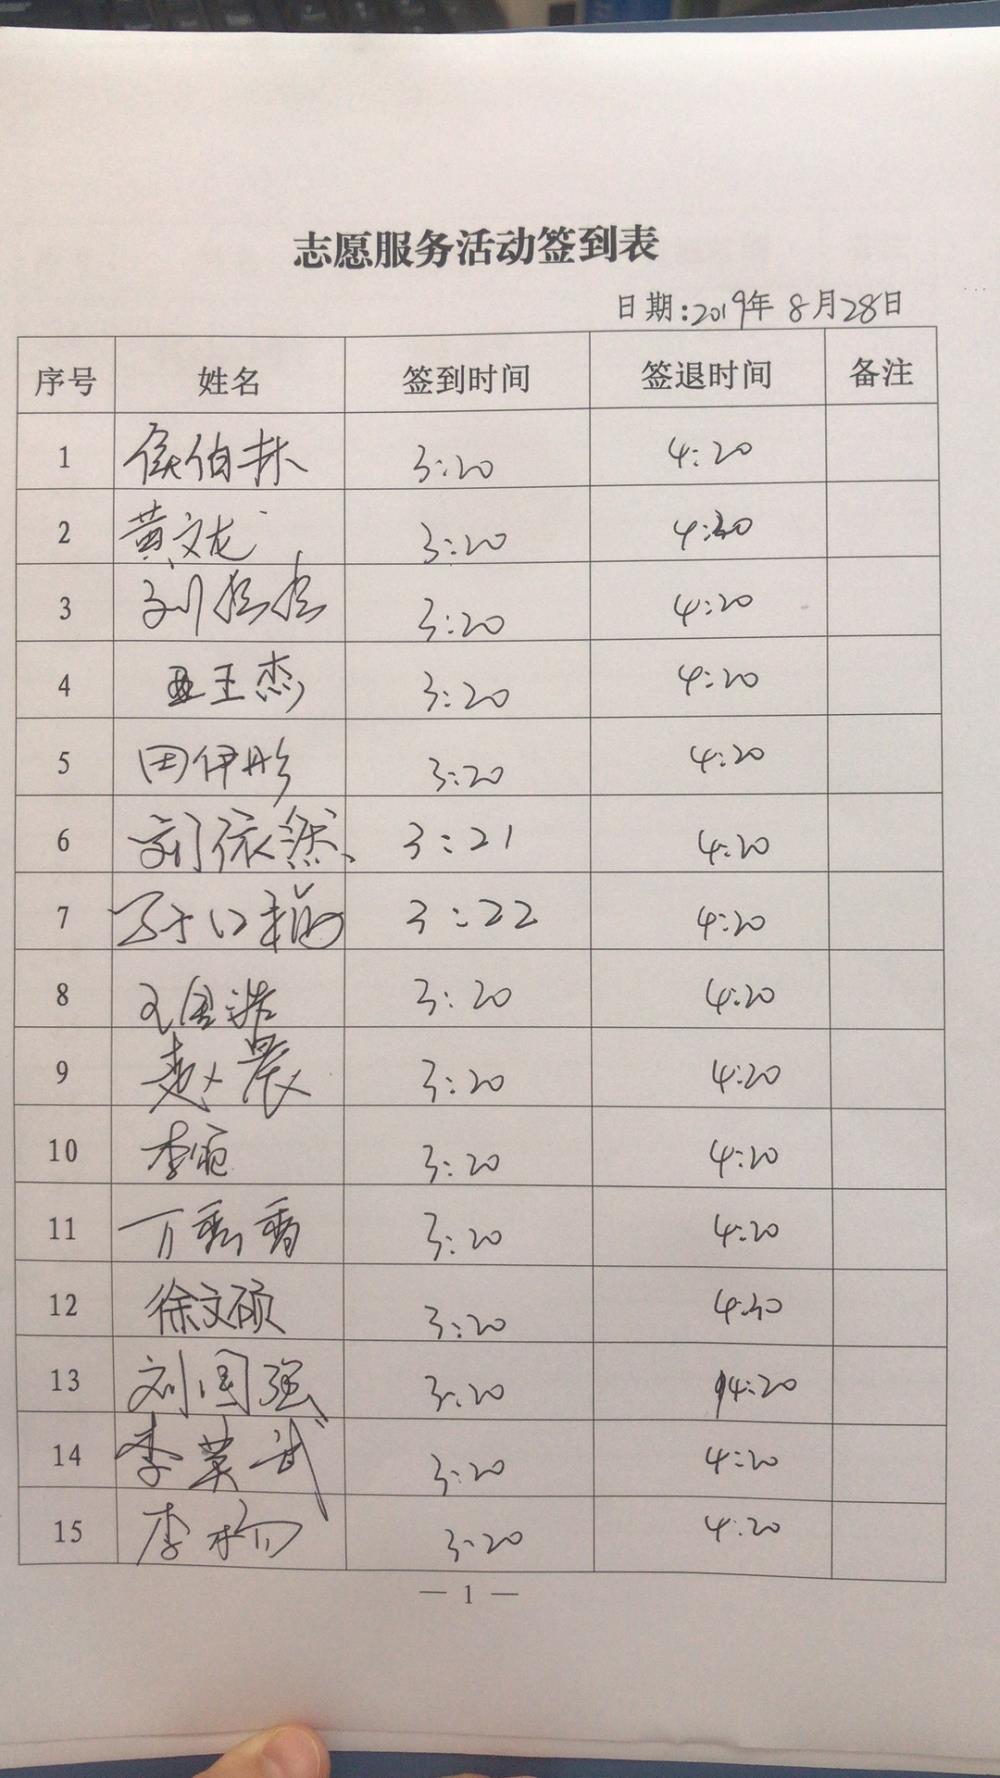 志愿服务活动签到表
日期:2019年 8月28日
序号 姓名 签到时间 签退时间 备注
1 侯伯林 3:20 4:20
2 黄文龙 3:20 4:30
3 刘 3:20 4:20
4 王杰 3:20 4:20
5 田伊彤 3:20 4:20
6 刘依然 3:21 4:20
7 3:22 4:20
8 王国浩 3:20 4:20
9 赵晨 3:20 4:20
10 李 3:20 4:20
11 丁秀香 3:20 4:20
12 徐文硕 3:20 4:30
13 刘国强 3:20 4:20
14 李英武 3:20 4:20
15 李杨 3:20 4:20
— 1 —